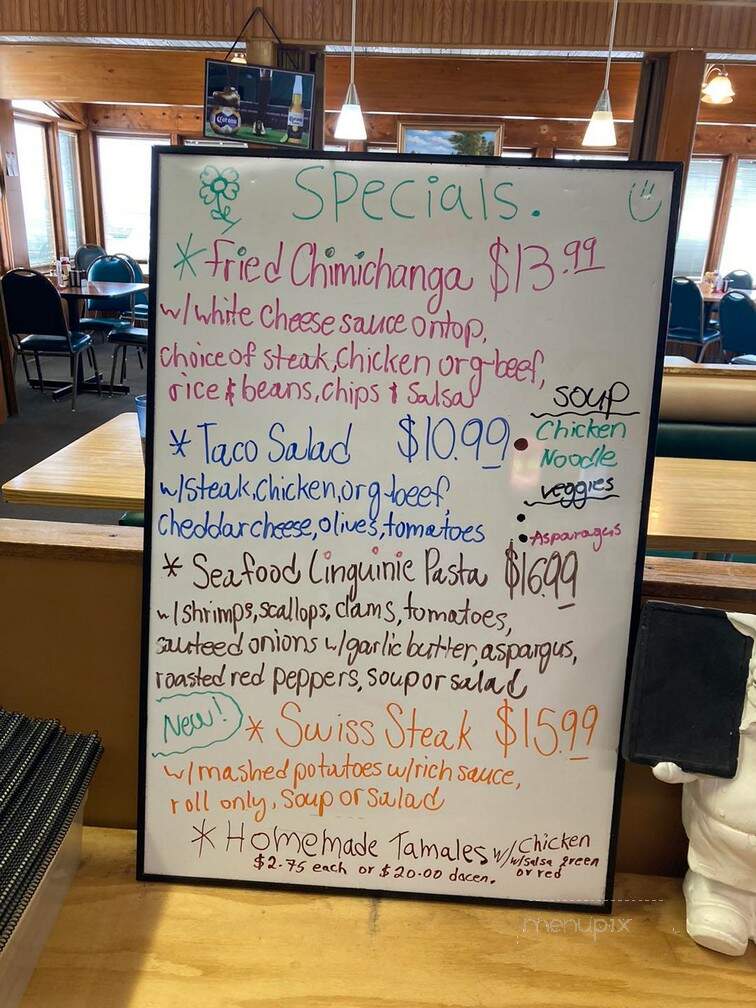 Specials.
* Fried Chimichanga $13.99
w/white cheese sauce on top,
choice of steak, chicken or g-beef,
rice & beans, chips & salsa
soup
Chicken
Noodle
veggies
Asparagus
* Taco Salad $10.99
w/steak, chicken, or g-beef,
cheddar cheese, olives, tomatoes
* Seafood Linguinie Pasta $16.99
w/shrimps, scallops, clams, tomatoes,
sauteed onions w/garlic butter, aspargus,
roasted red peppers, soup or salad
New!
* Swiss Steak $15.99
w/mashed potatoes w/rich sauce,
roll only, soup or salad
* Homemade Tamales w/Chicken
w/salsa green
or red
$2.75 each or $20.00 dacen.
menupix